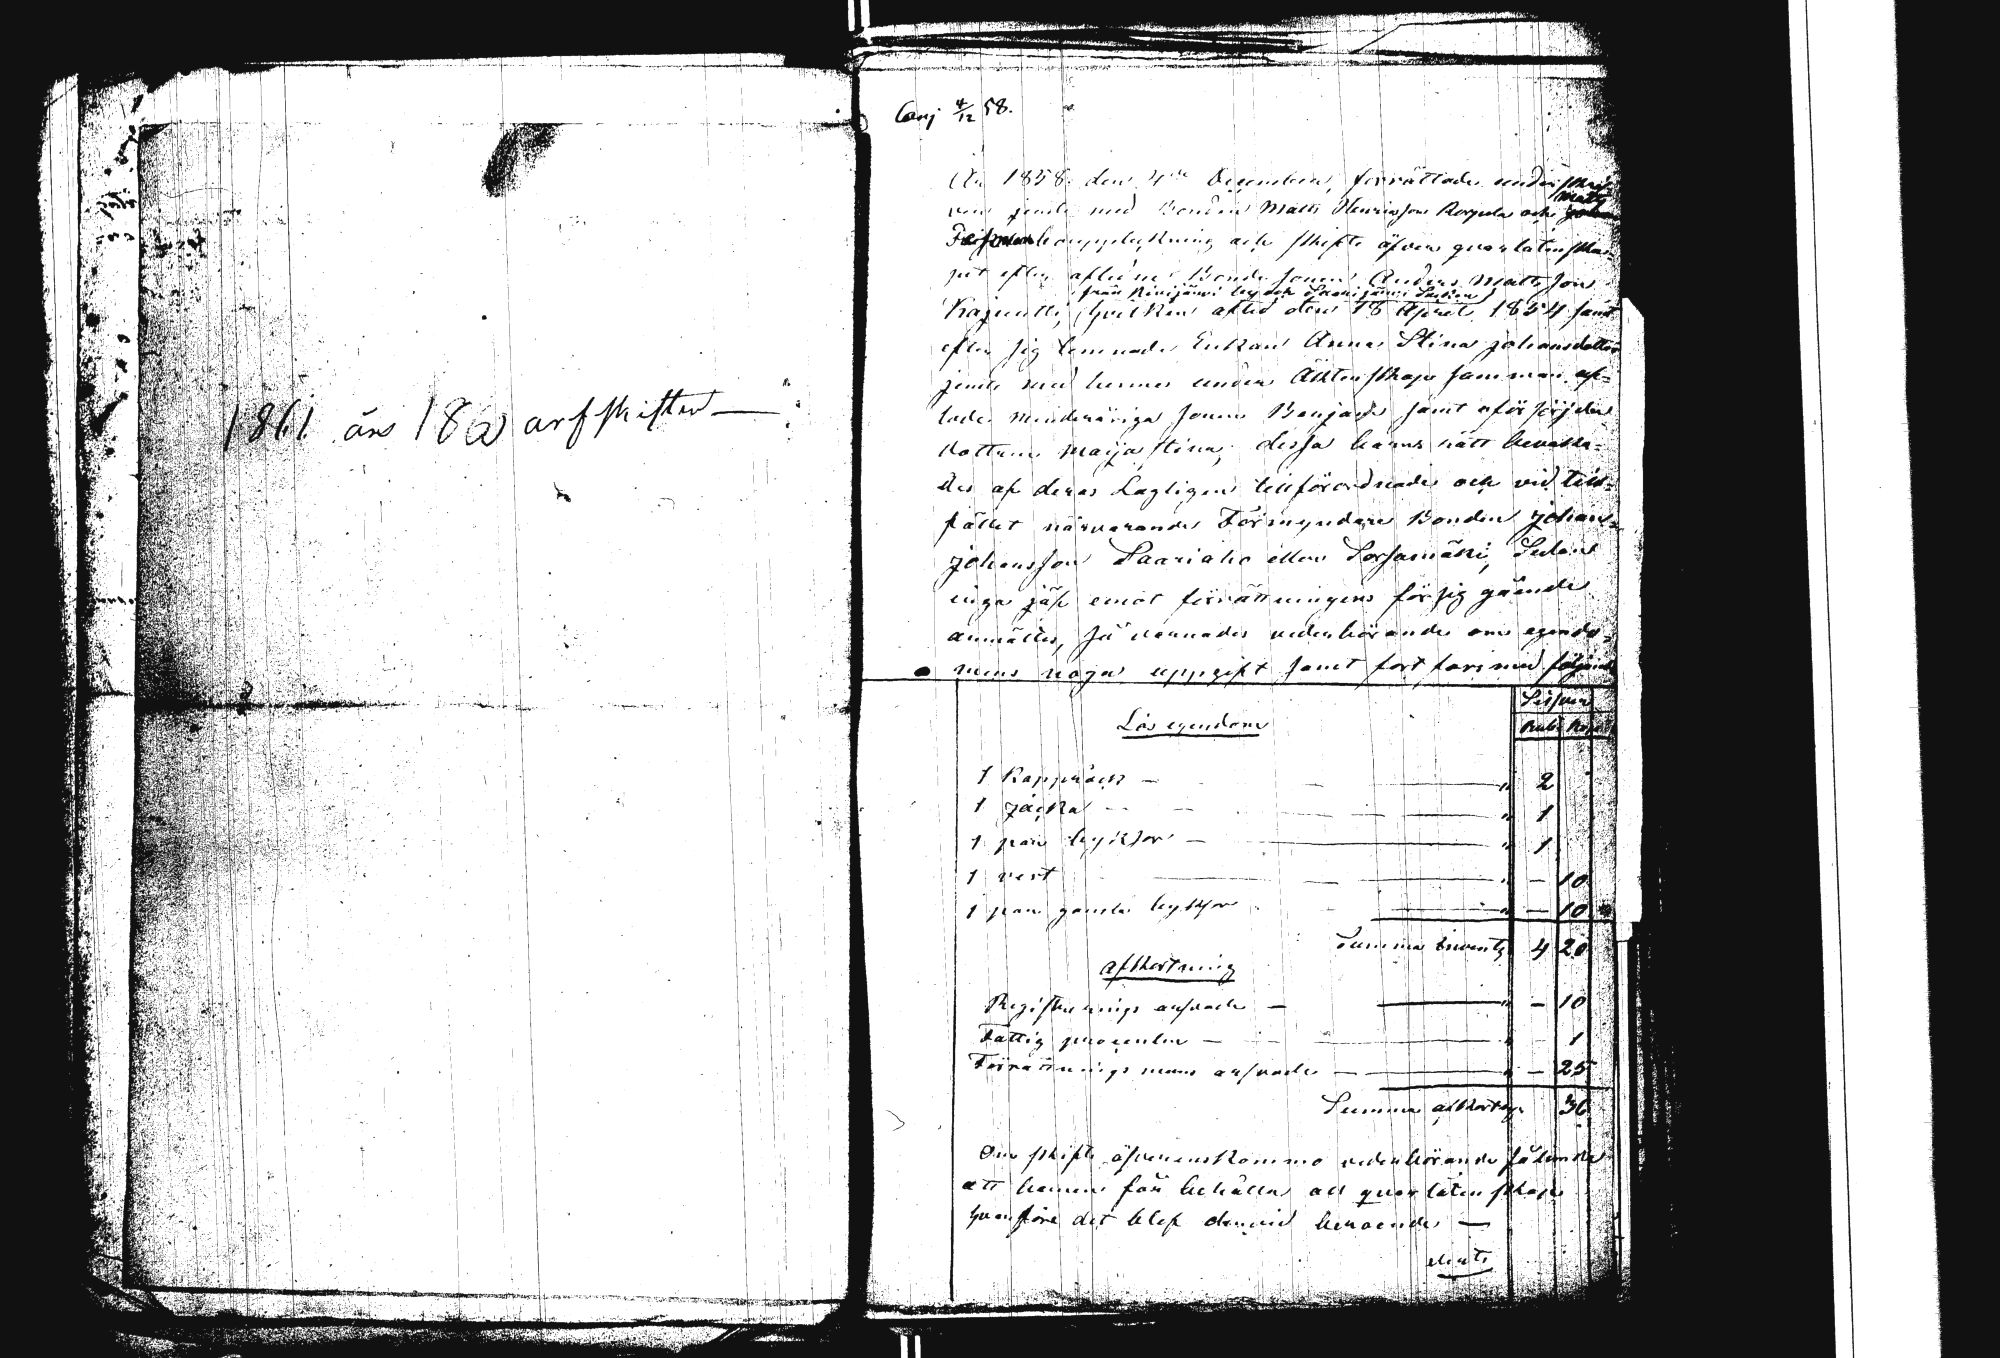 1861 års 18 arfskiften —
4/12 58.
År 1858 den 4de December, förrättade underskref-
ven jemte med Bonden Matts Henricsson och Matts
bouppteckning och skifte öfver qvarlåtenska-
pet efter aflidne Bonde Sonen Anders Mattsson
från Kivijärvi by och Saarijärvi Socken
hvilken afled den 18 April 1854 samt
efter sig lemnade Enkan Anna Stina Johansdotter
jemte med henne under Äktenskapet samman af-
lade minderåriga Sonen Benjam samt oförsörjda
dottren Maija Stina, dessa barns rätt bevaka-
des af deras Lagligen tillförordnade och vid till-
fället närvarande Förmyndare Bonden Johan
Johansson Saariaho eller Sorsamäki, Sedan
inga jäf emot förrättningens försiggående
anmältes, så varnades vederbörande om egendo-
mens noga uppgift samt fortfors med följande
Silfver
Rubl. Kop.
Lös egendom
1 Kappråck — — „ 2
1 Jacka — — „ 1
1 par byxsor — — „ 1
1 vest — „ — 10
1 par gamla byxsor — „ — 10
Summa Invent. 4 20
Afkortning
Registrerings arfvode — — „ — 10
Fattig procenten — — „ 1
Förrättnings mans arfvode — — „ — 25
Summa afkortng 36
Om skifte öfverenskommo vederbörande sålunda
att barnen får behålla all qvarlåtenskap
hvarföre det blef dervid beroende —